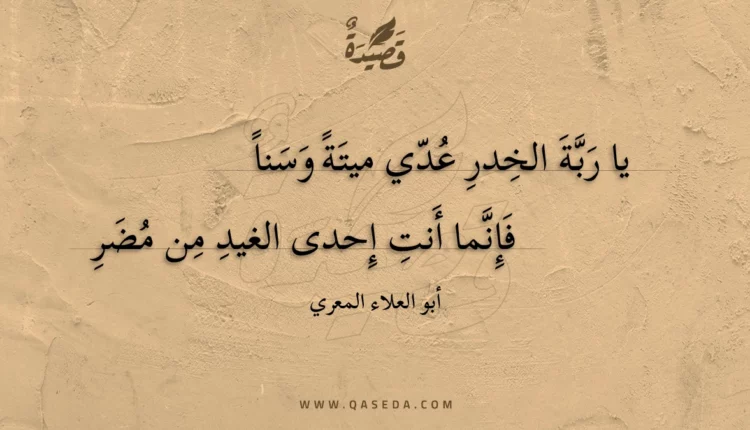 قَصِيْدَةٌ
يا رَبَّةَ الخِدرِ عُدّي ميتَةً وَسَناً
فَإِنَّما أَنتِ إِحدى الغيدِ مِن مُضَرِ
أبو العلاء المعري
WWW.QASEDA.COM